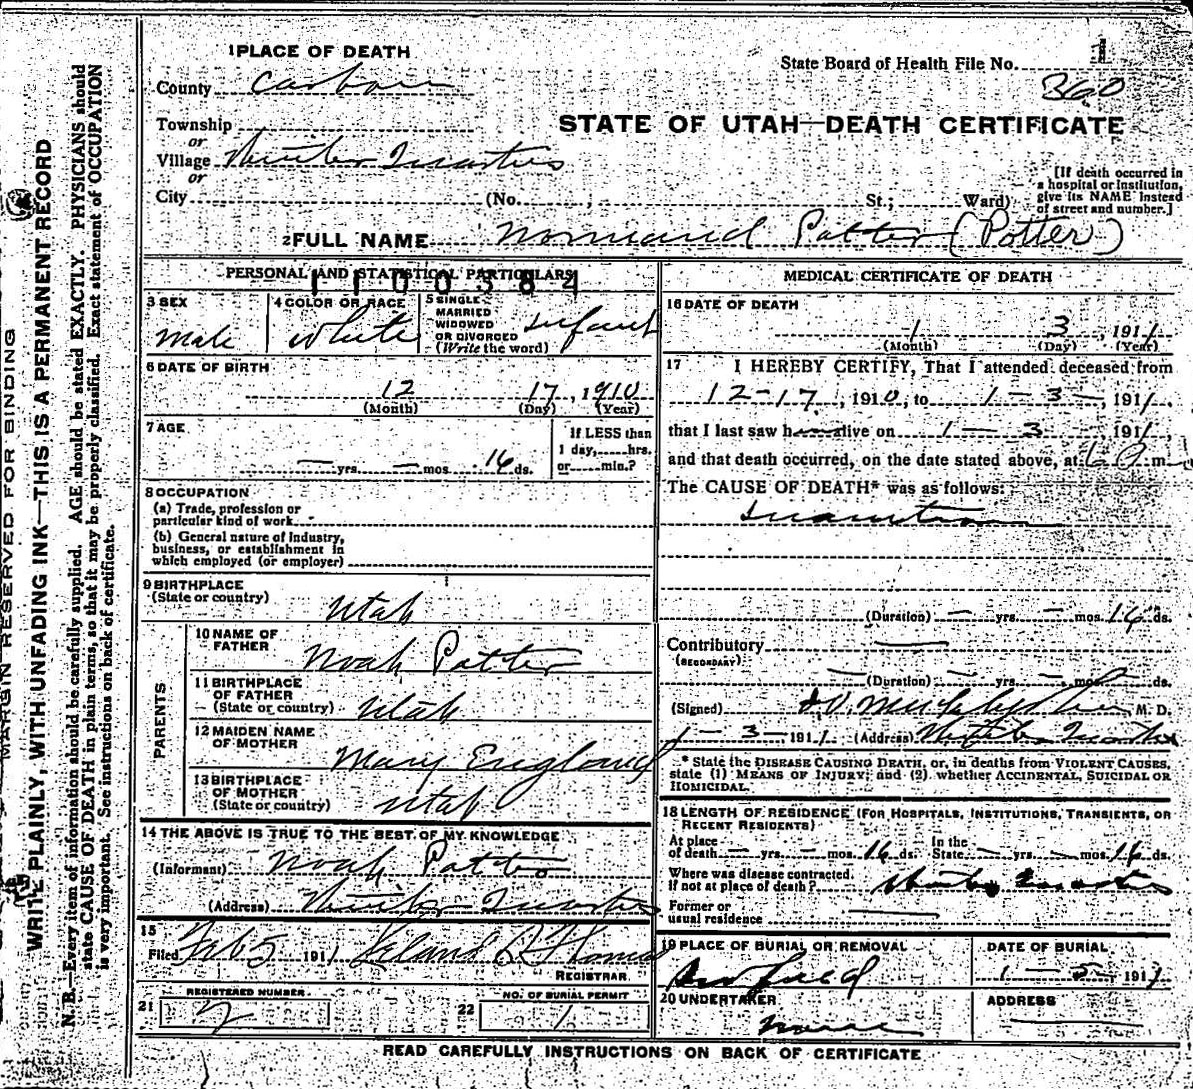 1 PLACE OF DEATH
State Board of Health File No.
360
County Carbon
STATE OF UTAH—DEATH CERTIFICATE
Township
or
Village Winter Quarters
or
City (No. , St.; Ward)
[If death occurred in
a hospital or institution,
give its NAME instead
of street and number.]
2 FULL NAME Patter (Potter)
PERSONAL AND STATISTICAL PARTICULARS
1100384
3 SEX
Male
4 COLOR OR RACE
White
5 SINGLE
MARRIED
WIDOWED
OR DIVORCED
(Write the word)
Infant
6 DATE OF BIRTH
12 17, 1910
(Month) (Day) (Year)
7 AGE
— yrs. — mos. 16 ds.
If LESS than
1 day, hrs.
or min.?
8 OCCUPATION
(a) Trade, profession or
particular kind of work
(b) General nature of industry,
business, or establishment in
which employed (or employer)
9 BIRTHPLACE
(State or country)
Utah
PARENTS
10 NAME OF
FATHER
Noah Patter
11 BIRTHPLACE
OF FATHER
(State or country)
Utah
12 MAIDEN NAME
OF MOTHER
Mary England
13 BIRTHPLACE
OF MOTHER
(State or country)
Utah
14 THE ABOVE IS TRUE TO THE BEST OF MY KNOWLEDGE
(Informant) Noah Patter
(Address) Winter Quarters
15
Filed Feb 5 191 Leland R Thomas
REGISTRAR
REGISTERED NUMBER
21 2
NO. OF BURIAL PERMIT
22 1
MEDICAL CERTIFICATE OF DEATH
16 DATE OF DEATH
1 3, 1911
(Month) (Day) (Year)
17 I HEREBY CERTIFY, That I attended deceased from
12-17, 1910, to 1 — 3 —, 1911,
that I last saw h alive on 1 — 3, 1911,
and that death occurred, on the date stated above, at 6 P m
The CAUSE OF DEATH* was as follows:
Inanition
(Duration) — yrs. — mos. 16 ds.
Contributory
(SECONDARY)
(Duration) — yrs. — mos. ds.
(Signed) M. D.
1 — 3 — 1911 (Address) Winter Quarters
* State the DISEASE CAUSING DEATH, or, in deaths from VIOLENT CAUSES,
state (1) MEANS OF INJURY; and (2) whether ACCIDENTAL, SUICIDAL OR
HOMICIDAL.
18 LENGTH OF RESIDENCE (FOR HOSPITALS, INSTITUTIONS, TRANSIENTS, OR
RECENT RESIDENTS)
At place
of death — yrs. — mos. 16 ds.
In the
State — yrs. — mos. 16 ds.
Where was disease contracted,
if not at place of death? Winter Quarters
Former or
usual residence
19 PLACE OF BURIAL OR REMOVAL
DATE OF BURIAL
1 — 5 — 1911
20 UNDERTAKER
None
ADDRESS
READ CAREFULLY INSTRUCTIONS ON BACK OF CERTIFICATE
MARGIN RESERVED FOR BINDING
WRITE PLAINLY, WITH UNFADING INK—THIS IS A PERMANENT RECORD
N. B.—Every item of information should be carefully supplied. AGE should be stated EXACTLY. PHYSICIANS should
state CAUSE OF DEATH in plain terms, so that it may be properly classified. Exact statement of OCCUPATION
is very important. See instructions on back of certificate.